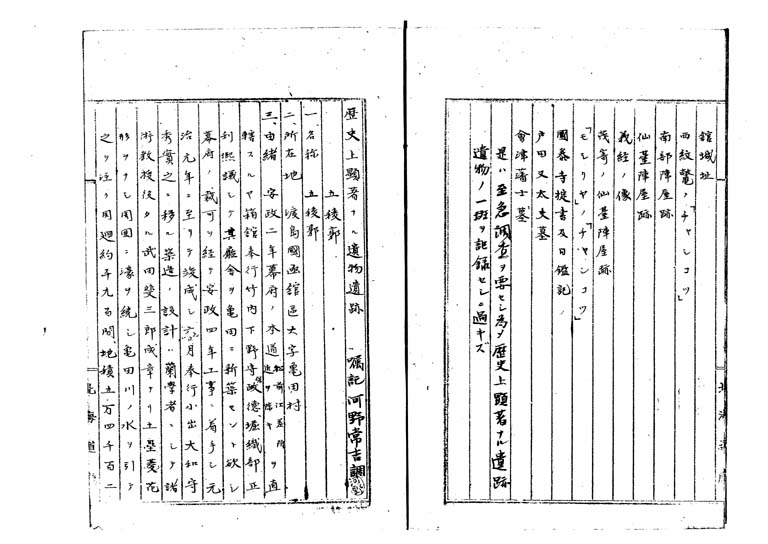 館城址
西紋鼈ノ「チャシコツ」
南部陣屋跡
仙薹陣屋跡
義經ノ像
茂寄ノ仙薹陣屋跡
「モシリヤ」ノ「チャシコツ」
國泰寺掟書及日鑑記
戸田又太夫墓
會津藩士墓
是ハ至急調査ヲ要セシ為メ歴史上顕著ナル遺跡
遺物ノ一班ヲ記録セシニ過キズ
歴史上顕著ナル遺物遺跡
嘱託河野常吉調
五稜郭
一、名称 五稜郭
二、所在地 渡島國函館區大字亀田村
三、由緒 安政二年幕府ノ木通松前江差附近ヲ除キヲ直
轄スルヤ箱館奉行竹内下野守保徳、堀織部正
利熙議シテ其廳舎ヲ亀田ニ新築セント欲シ
幕府ノ裁可ヲ経テ安政四年工事ニ着手シ元
治元年ニ至リテ竣成シ六月奉行小出大和守
秀實之ニ移ル築造ノ設計ハ蘭學者ニシテ諸
術教授役タル武田斐三郎成章ナリ土壘菱花
形ヲナシ周囲ニ濠ヲ繞シ亀田川ノ水ヲ引テ
之ヲ注ク周廻約千九百間、地積五万四千百二
北海道廳
北海道